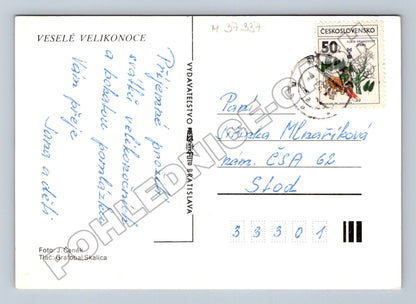 VESELÉ VELIKONOCE
M 37 337
ČESKOSLOVENSKO
50
Příjemné prožití
svátků velikonočních
a bohatou pomlázku
Vám přeje
Jana a děti
VYDAVATEĽSTVO
BRATISLAVA
Paní
Mlnaříková
nam. ČSA 62
Stod
3 3 3 0 1
Foto: J. Čeněk
Tlač: Grafobal Skalica
POHLEDNICE-